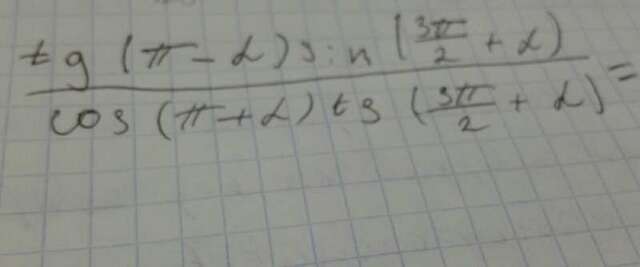 tg (π - α) sin (3π/2 + α)
cos (π + α) tg (3π/2 + α) =